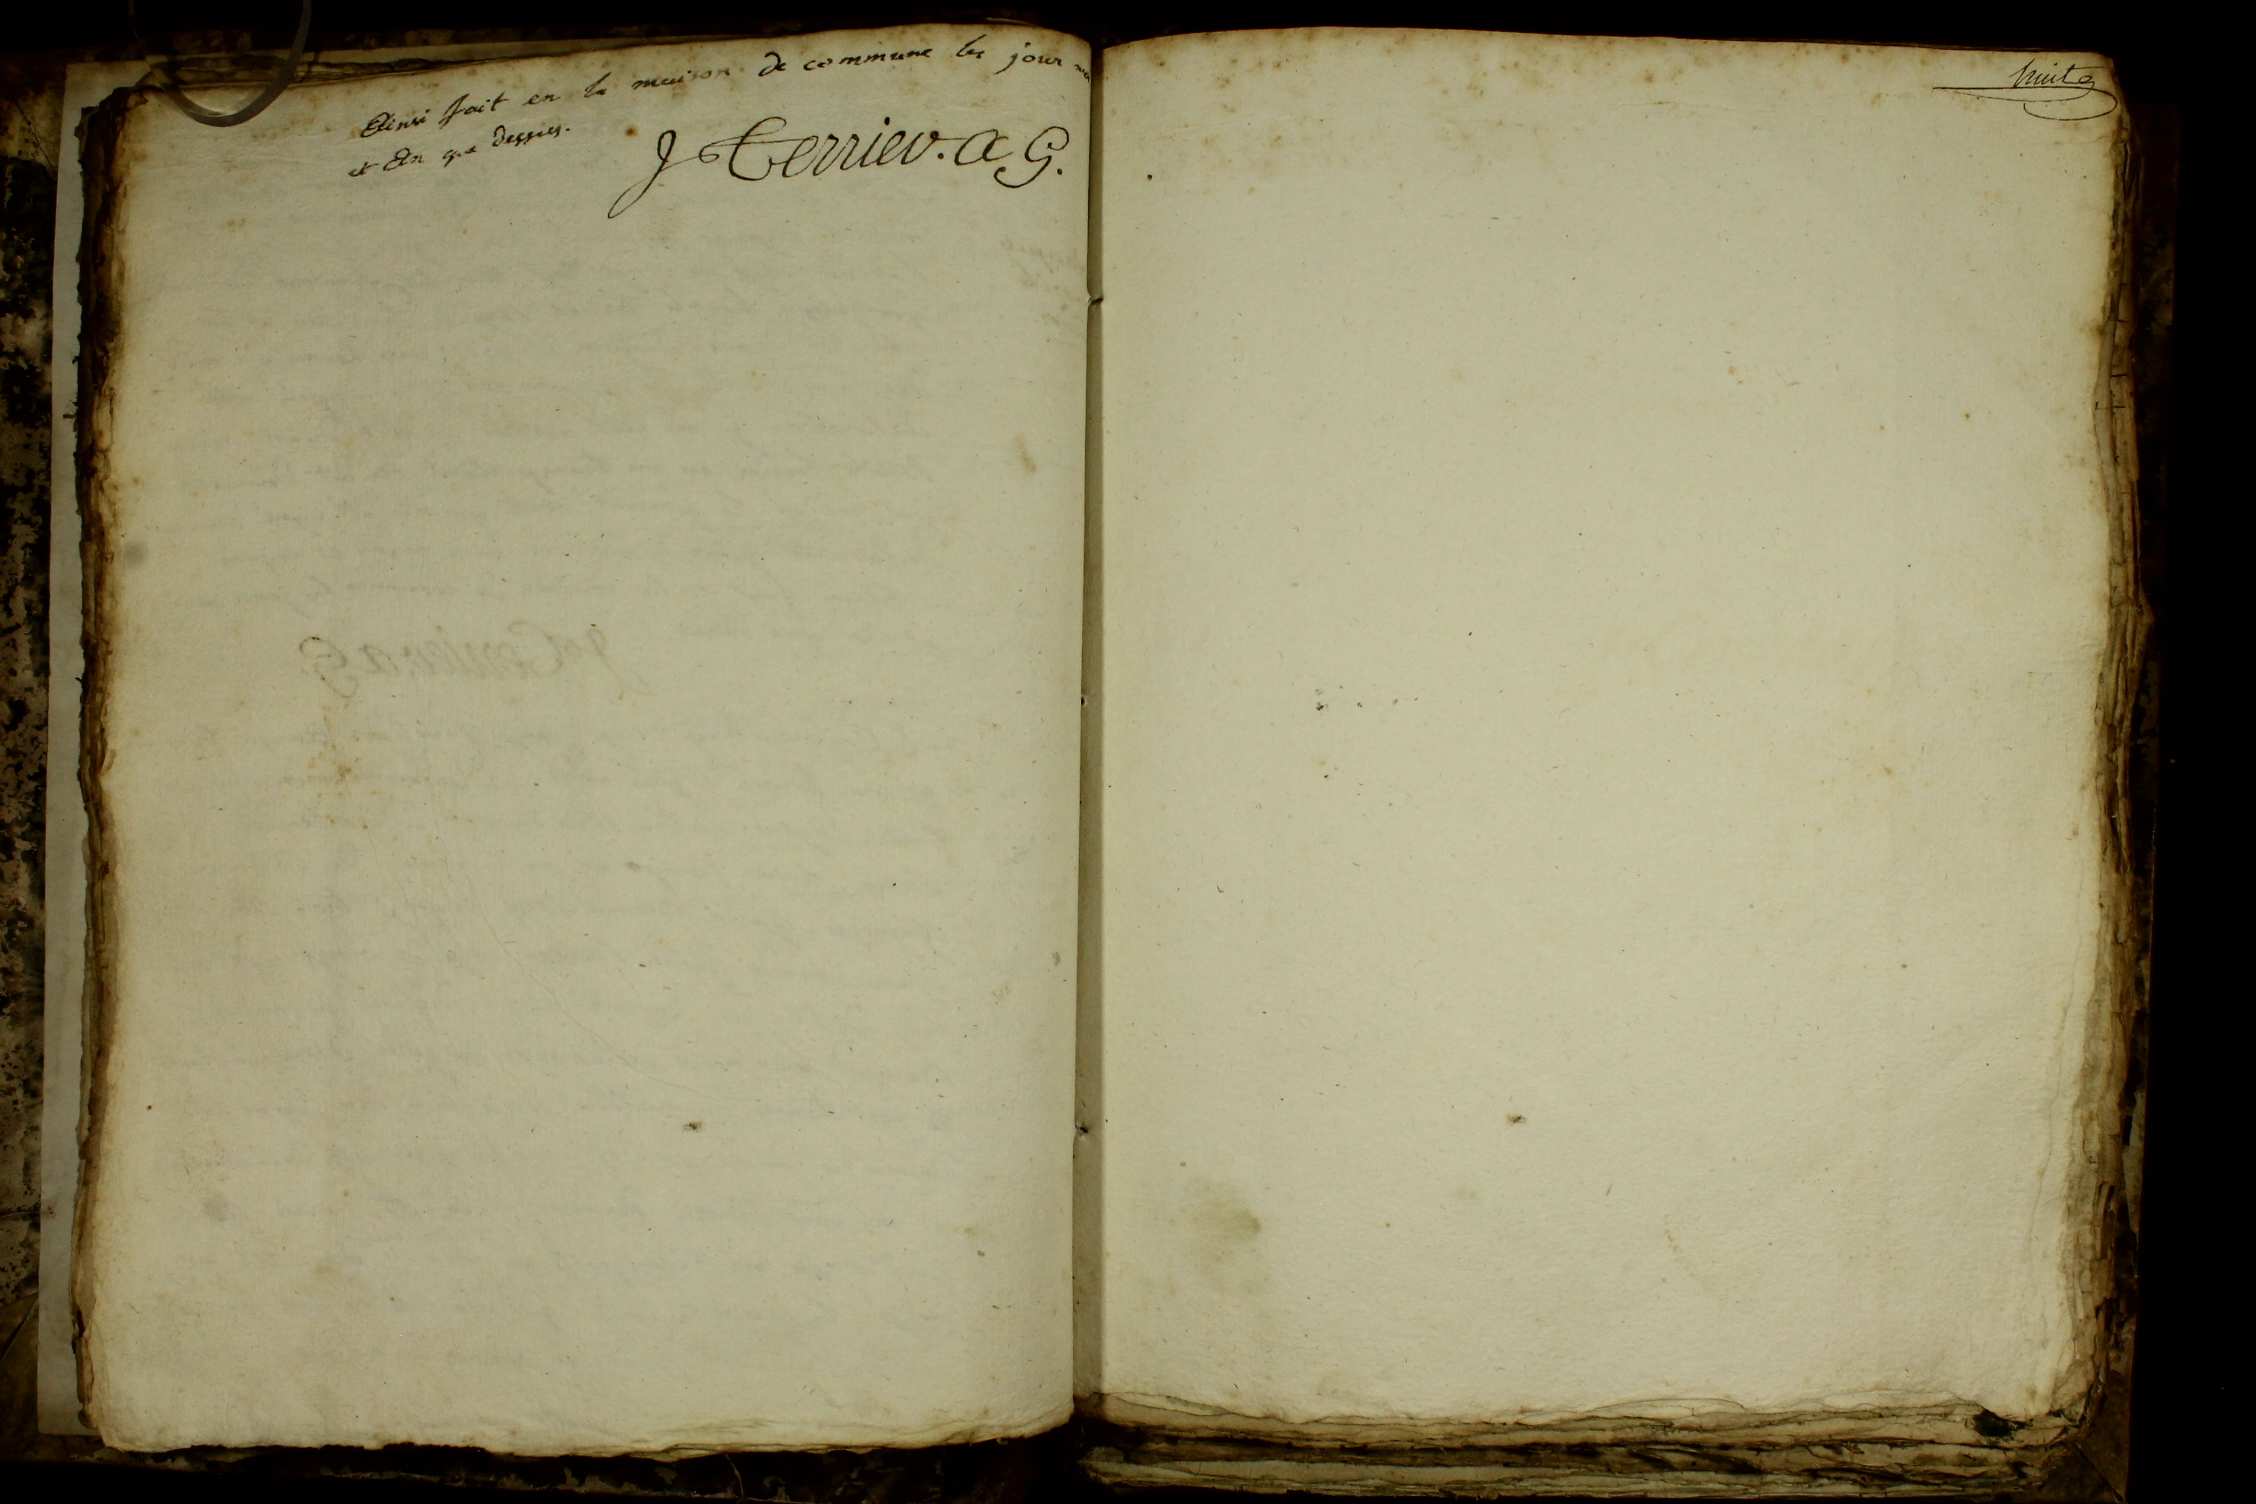 Ainsi fait en la maison de commune les jour mois
et An que dessus.
J Terrier. a G.
huit